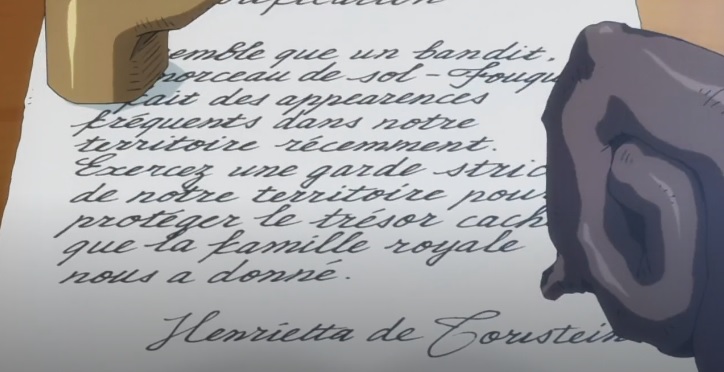 que un bandit,
morceau de sol - Fouqu
fait des appearences
fréquents dans notre
territoire récemment.
Exercez une garde stric
de notre territoire pou
protéger le trésor cach
que la famille royale
nous a donné.
Henrietta de Toristein